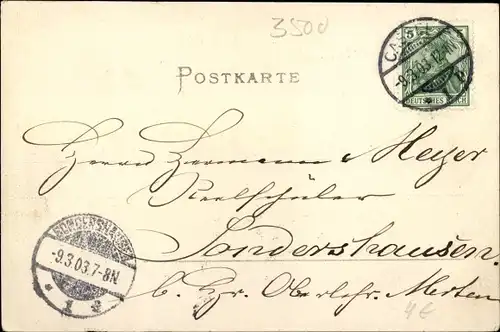 3500
CASSEL
-9.3.03.12-1N
DEUTSCHES REICH
POSTKARTE
Herrn Hermann Meyer
Realschüler
Sondershausen.
b. Hr. Oberlehr. Merten
SONDERSHAUSEN
-9.3.03.7-8N
* 1 e
4€